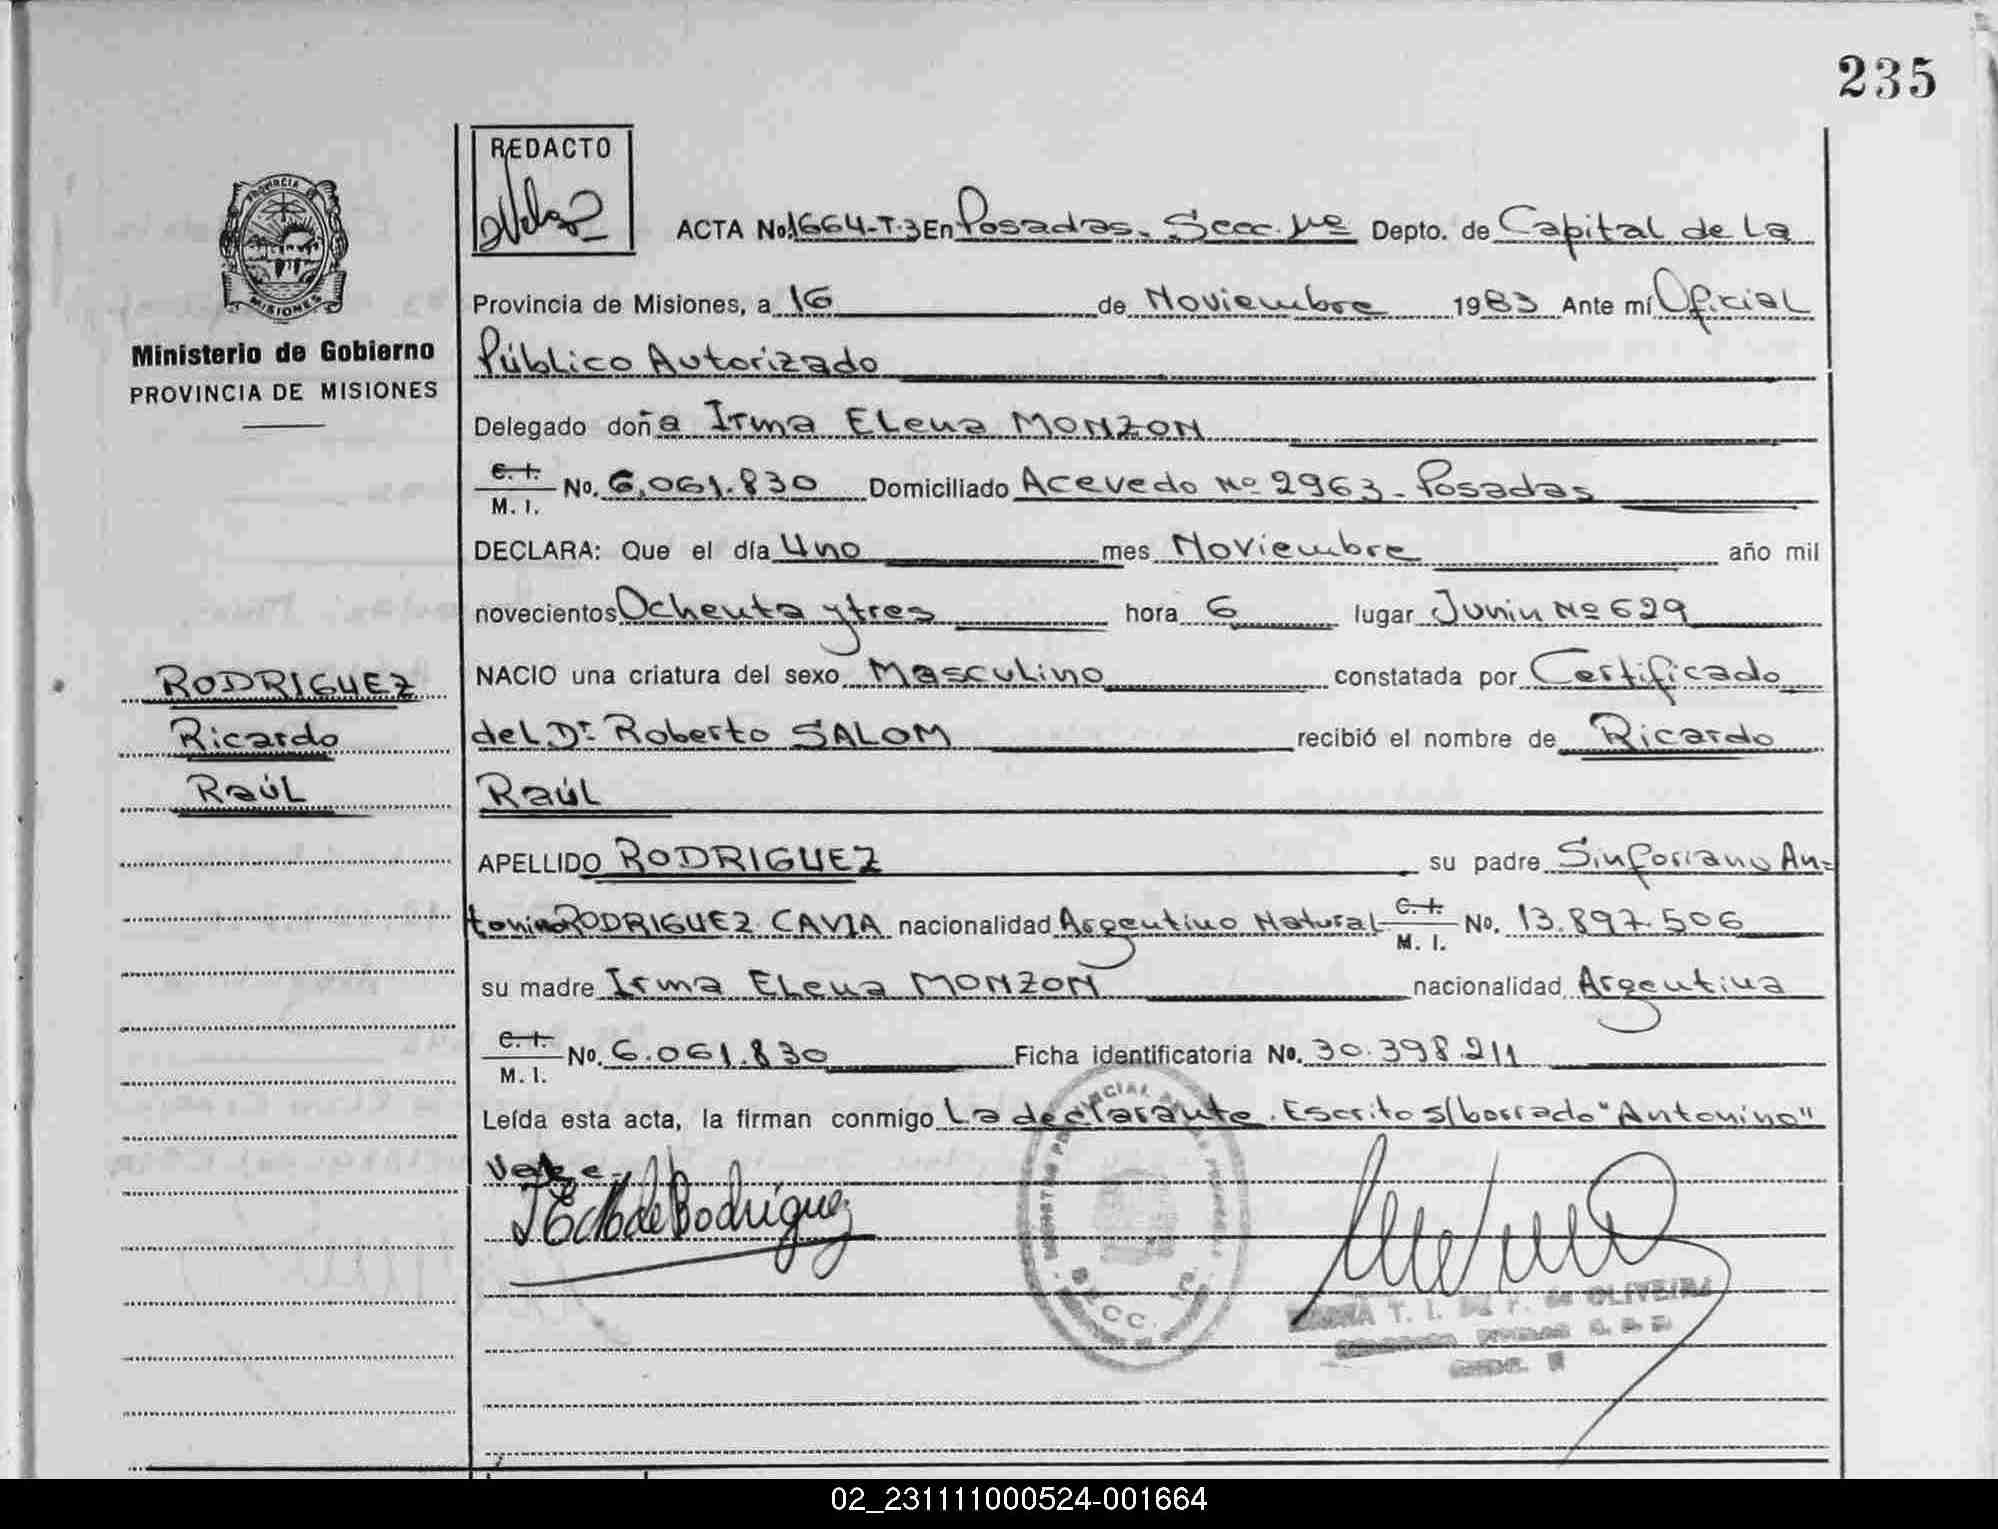 235
REDACTO
ACTA No. 1664-T.3 En Posadas. Secc. 1ra Depto. de Capital de La
Provincia de Misiones, a 16 de Noviembre 1983 Ante mí Oficial
Público Autorizado
Delegado doña Irma ELena MONZON
C. I.
M. I. No. 6.061.830 Domiciliado Acevedo Nº 2963 - Posadas
DECLARA: Que el día Uno mes Noviembre año mil
novecientos Ochenta y tres hora 6 lugar Junin Nº 629
NACIO una criatura del sexo Masculino constatada por Certificado
del Dr. Roberto SALOM recibió el nombre de Ricardo
Raúl
APELLIDO RODRIGUEZ su padre Sinforiano An=
tonino RODRIGUEZ CAVIA nacionalidad Argentino Natural C. I. M. I. No. 13.897.506
su madre Irma ELena MONZON nacionalidad Argentina
C. I.
M. I. No. 6.061.830 Ficha identificatoria No. 30.398.211
Leída esta acta, la firman conmigo La declarante. Escrito s/borrado "Antonino"
Vale.-
PROVINCIA DE MISIONES
Ministerio de Gobierno
PROVINCIA DE MISIONES
RODRIGUEZ
Ricardo
Raúl
de Rodriguez
T. I. de OLIVEIRA
02_231111000524-001664